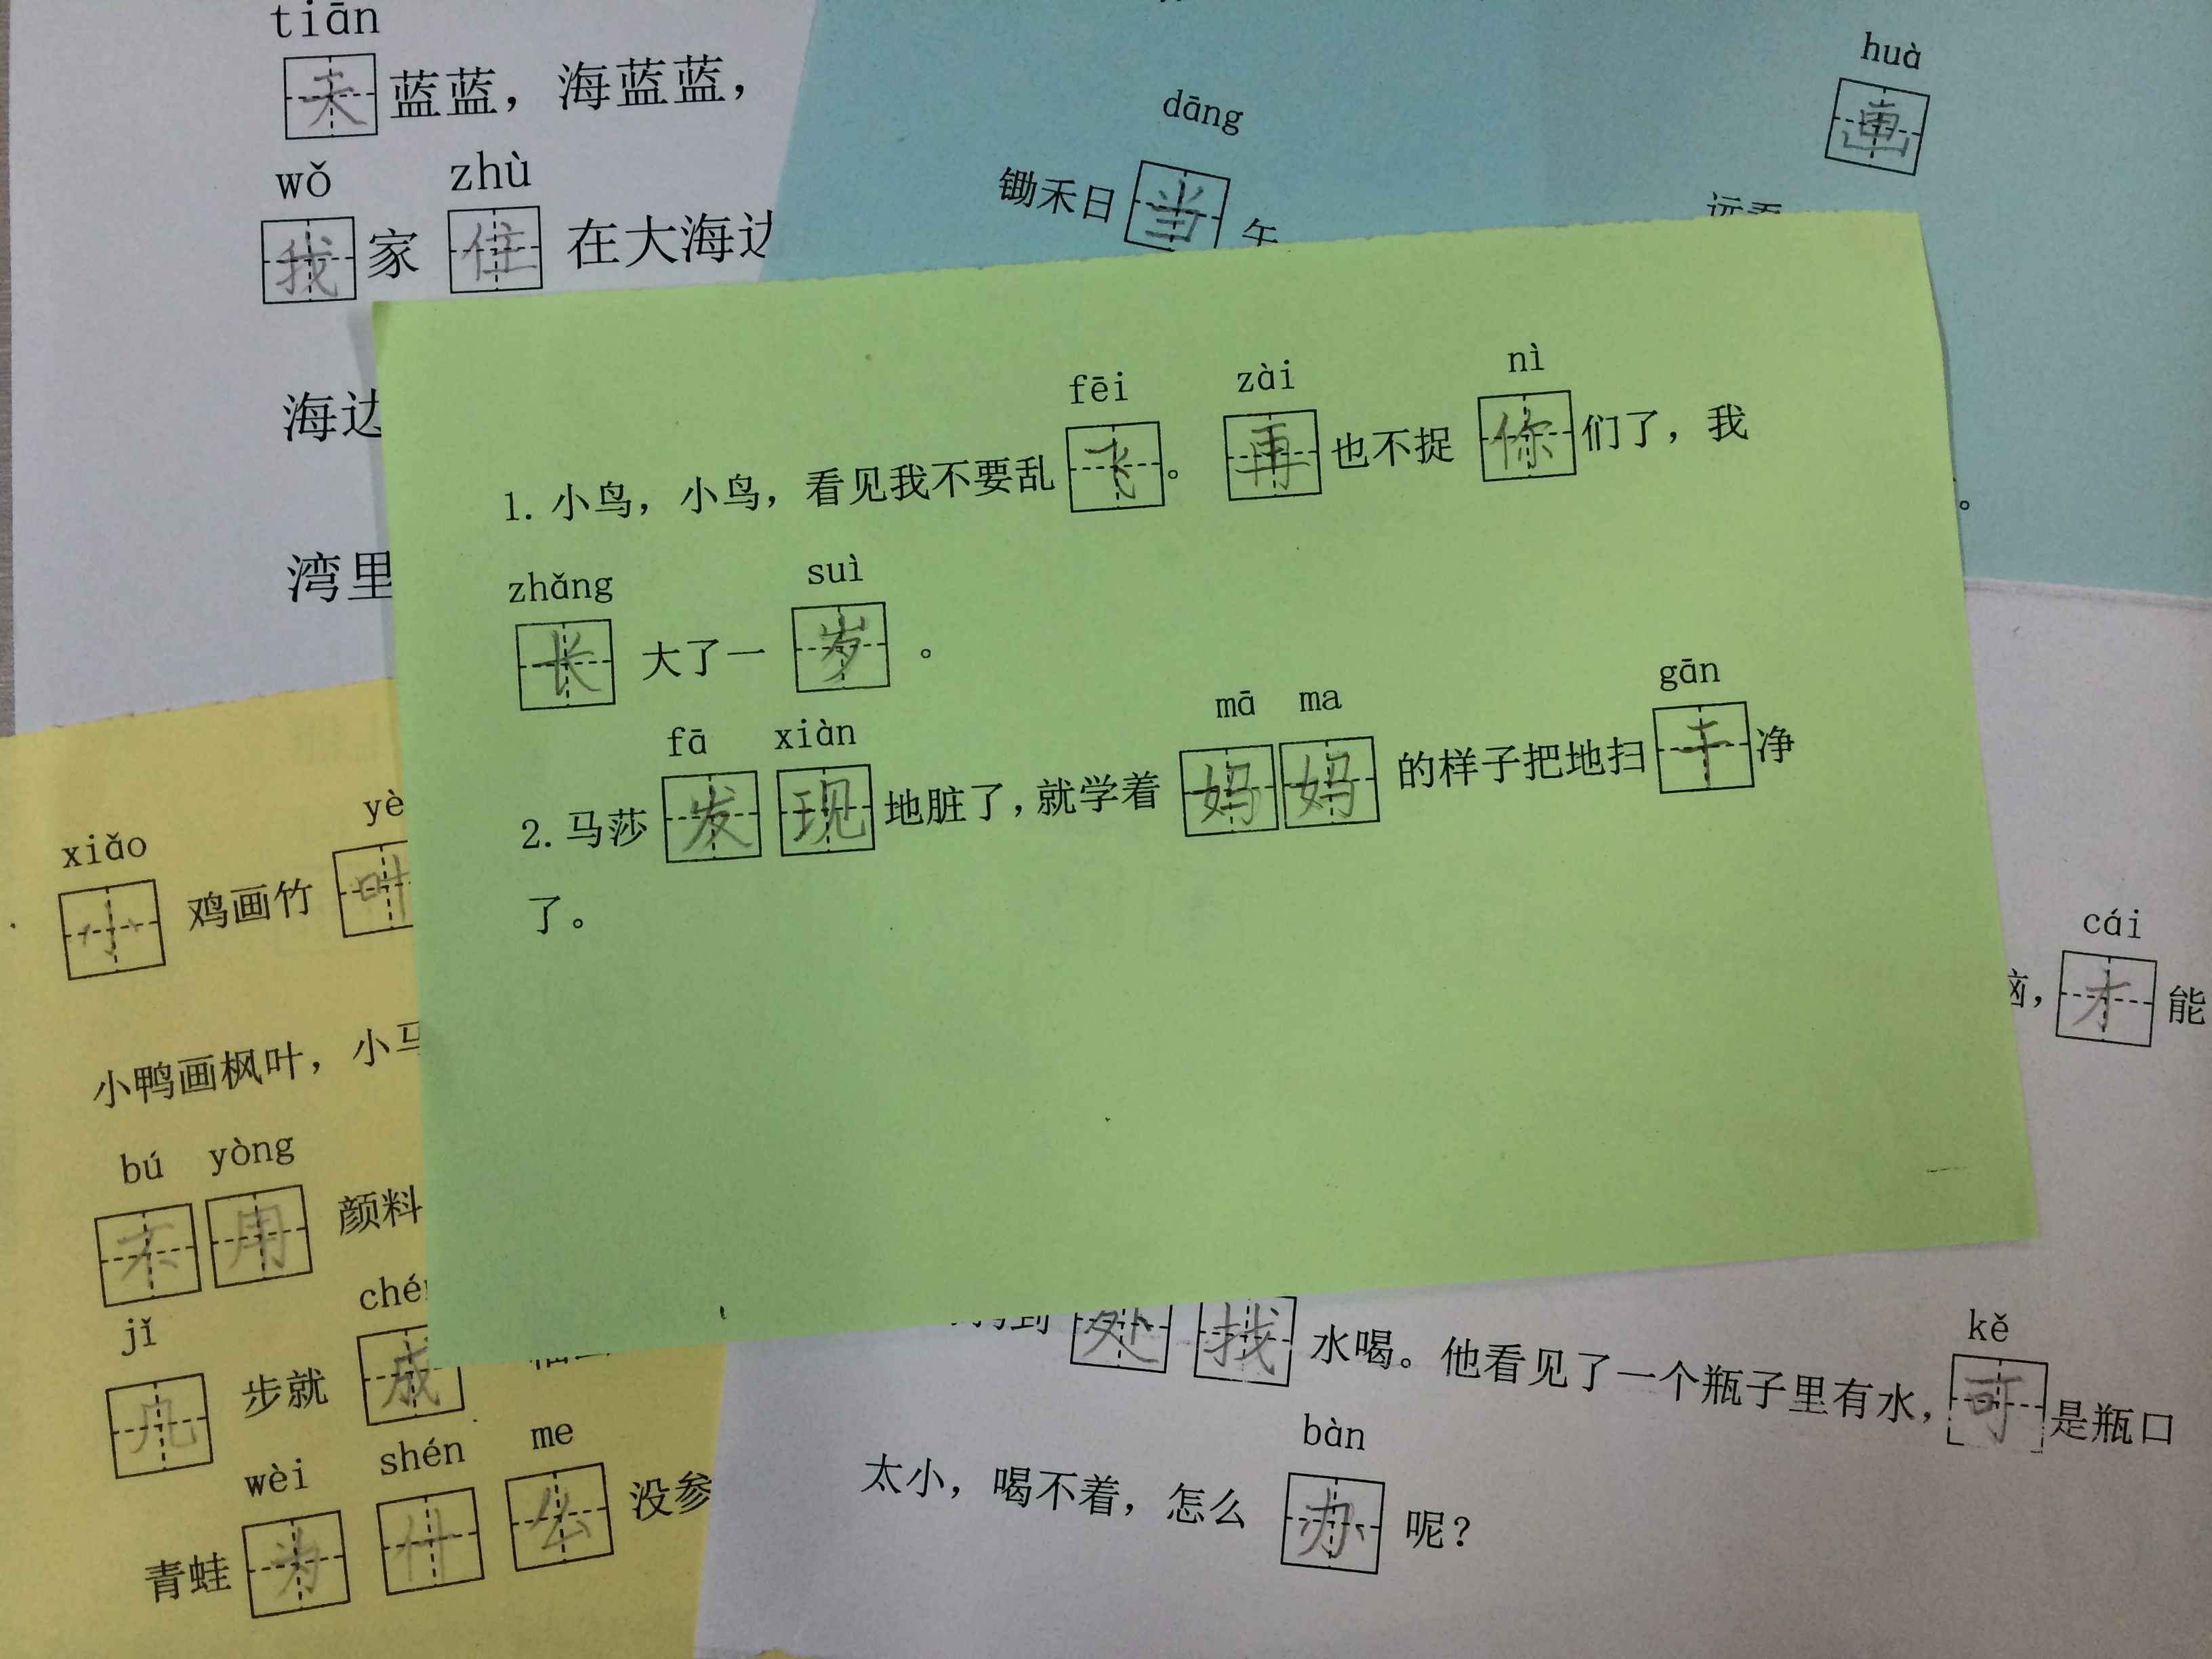 tiān
天蓝蓝，海蓝蓝，
wǒ zhù
我家住在大海边
海边
湾里
dāng
锄禾日当午
huà
画
远看
fēi zài nì
1. 小鸟，小鸟，看见我不要乱飞。再也不捉你们了，我
zhǎng suì
长大了一岁。
fā xiàn mā ma gān
2. 马莎发现地脏了，就学着妈妈的样子把地扫干净
了。
xiǎo yè
小鸡画竹叶
小鸭画枫叶，小马
bú yòng
不用颜料
jǐ
几步就成
wèi shén me
青蛙为什么没参
cái
脑，才能
处找水喝。他看见了一个瓶子里有水，可是瓶口
kě
bàn
太小，喝不着，怎么办呢？